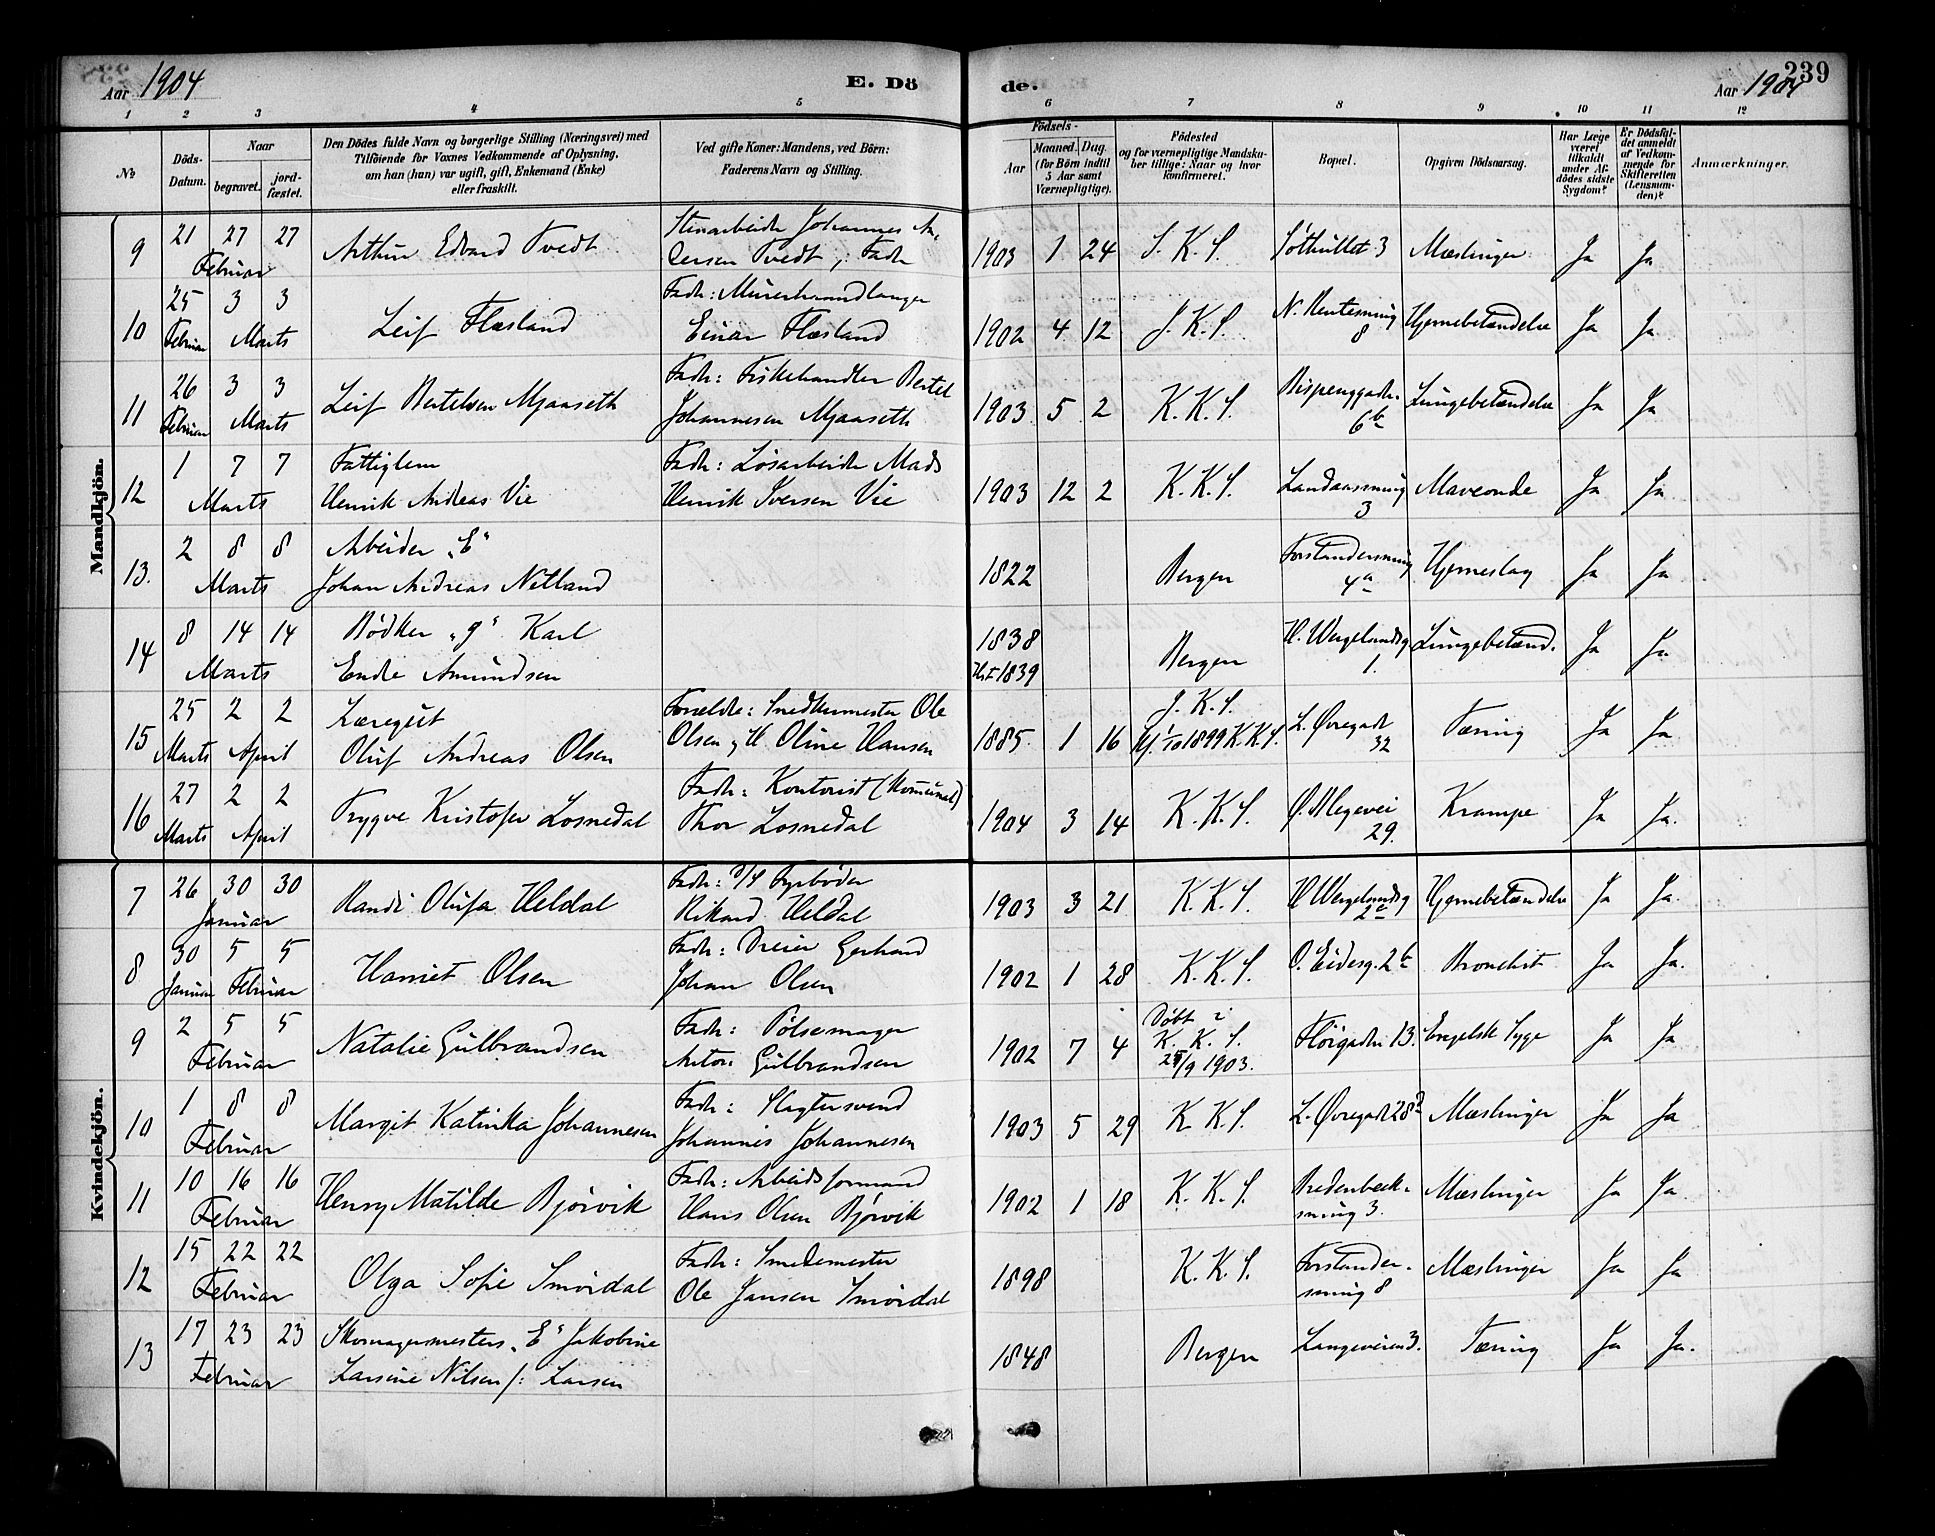 Aar 1904 E. Dö
de. Aar 1904 239
1 2 3 4 5 6 7 8 9 10 11 12
№ Döds-Datum. Naar begravet. jord-fæstet.
Den Dödes fulde Navn og borgerlige Stilling (Næringsvei) med
Tilföiende for Voxnes Vedkommende af Oplysning,
om han (hun) var ugift, gift, Enkemand (Enke)
eller fraskilt.
Ved gifte Koner: Mandens, ved Börn:
Faderens Navn og Stilling.
Födsels-
Aar Maaned. Dag.
(for Börn indtil
5 Aar samt
Værnepligtige).
Födested
og for værnepligtige Mandsku-
ber tillige: Naar og hvor
konfirmeret.
Bopæl.
Opgiven Dödsaarsag.
Har Læge
været
tilkaldt
under Af-
dödes sidste
Sygdom?
Er Dödsfal-
det anmeldt
af Vedkom-
mende for
Skifteretten
(Lensman-
den)?
Anmærkninger.
Mandkjön.
9 21 27 27 Februar Arthur Edvard Tvedt Stenarbeider Johannes An-
dersen Tvedt, Fader 1903 1 24 S. K. S. Søthullet 3 Mæslinger Ja Ja
10 25 3 3 Februar Marts Leif Flæsland Fader: Murerhaandlanger
Einar Flæsland 1902 4 12 J. K. S. N. Rentesmug
8 Hjernebetændelse Ja Ja
11 26 3 3 Februar Marts Leif Bertelsen Mjaaseth Fader: Fiskehandler Bertel
Johannesen Mjaaseth 1903 5 2 K. K. S. Bispenggaden
6b Lungebetændelse Ja Ja
12 1 7 7 Marts Fattiglem
Henrik Andreas Vie Fader: Løsarbeider Mads
Henrik Iversen Vie 1903 12 2 K. K. S. Landaassmug
3 Maveonde Ja Ja
13. 2 8 8 Marts Arbeider „E"
Johan Andreas Netland 1822 Bergen Forstandersmug
4a Hjerneslag Ja Ja
14 8 14 14 Marts Bødker „g" Karl
Endre Amundsen 1838
1839 Bergen H. Wergelandsg
1. Lungebetænd. Ja Ja
15 25 2 2 Marts April Læregut
Oluf Andreas Olsen Forældre: Snedkermester Ole
Olsen, H Oline Hansen 1885 1 16 J. K. S.
1/10 1899 K. K. S. L. Øvregade
32 Tæring Ja Ja
16 27 2 2 Marts April Trygve Kristofer Losnedal Fader: Kontorist (Komunal)
Thor Losnedal 1904 3 14 K. K. S. Ø. Blegevei
29. Krampe Ja Ja.
Kvindekjön.
7 26 30 30 Januar Randi Olufa Heldal Fader: D/S Fyrbøder
Rikard Heldal 1903 3 21 K. K. S. H Wergelandsg
2c Hjernebetændelse Ja Ja.
8 30 5 5 Januar Februar Harriet Olsen Fader: Dreier Gerhard
Johan Olsen 1902 1 28 K. K. S. O. Eidesg. 2b Bronchit Ja Ja.
9 2 5 5 Februar Natalie Gulbrandsen Fader: Pølsemager
Anton Gulbrandsen 1902 7 4 Døbt i
K. K. S.
/9 1903. Fløigaden 13. Engelsk Syge Ja Ja
10 1 8 8 Februar Margit Katinka Johannesen Fader: Slagtersvend
Johannes Johannesen 1903 5 29 K K. S. L. Øvregade 28 Mæslinger Ja Ja
11 10 16 16 Februar Henny Matilde Bjørvik Fader: Arbeidsformand
Hans Olsen Bjørvik 1902 1 18 K. K. S. Bredenbeck-
smug 3. Mæslinger Ja Ja.
12 15 22 22 Februar Olga Sofie Smørdal Fader: Smedemester
Ole Jansen Smørdal 1898 K. K. S. Forstander-
smug 8 Mæslinger Ja Ja
13 17 23 23 Februar Skomagermesters „E" Jakobine
Larsine Nilsen f: Larsen 1848 Bergen Langeveien 3. Tæring Ja Ja.